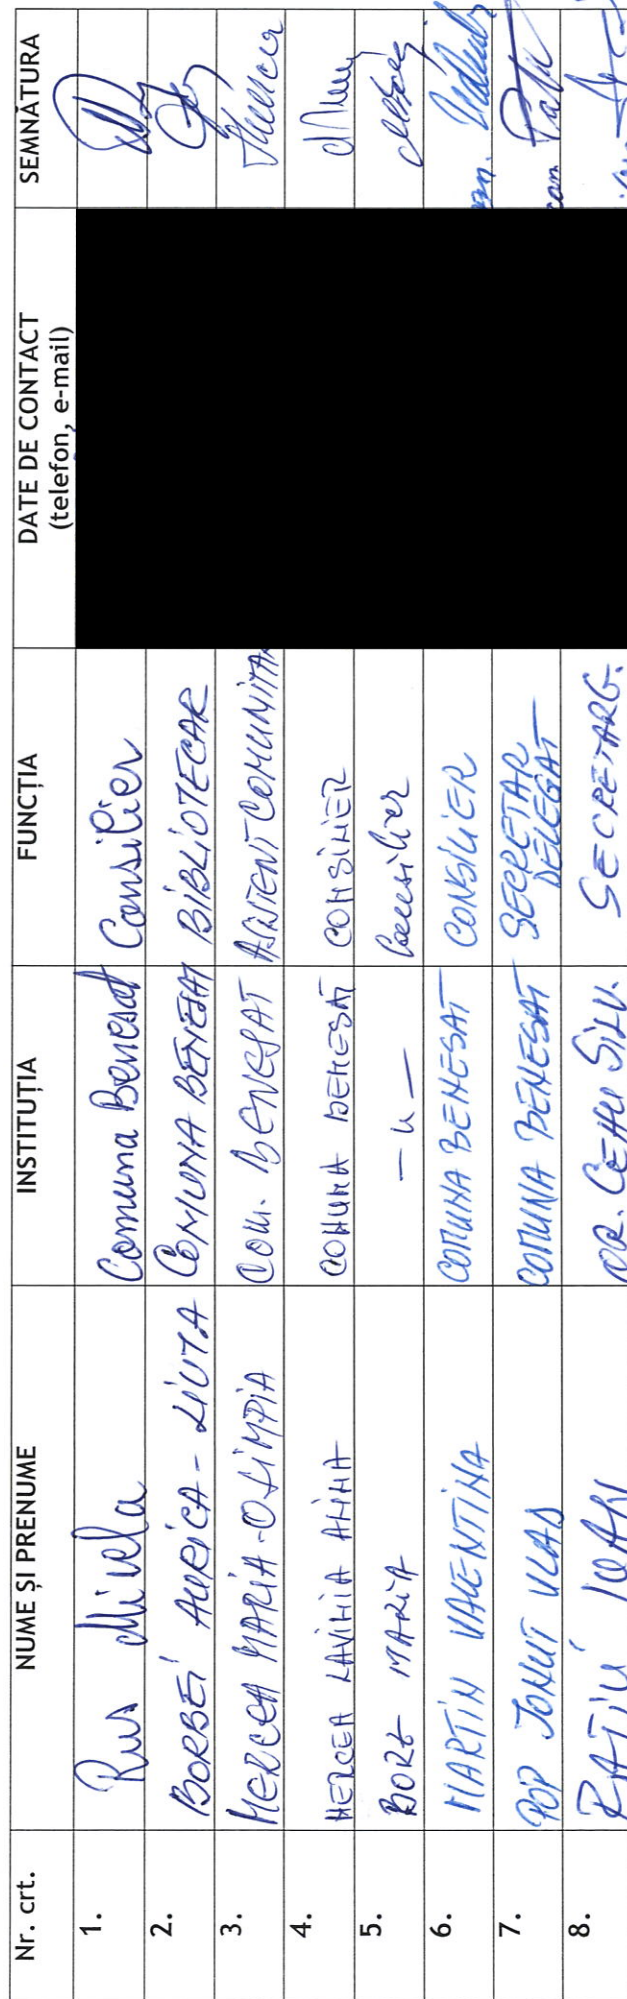 Nr. crt. NUME ȘI PRENUME INSTITUȚIA FUNCȚIA DATE DE CONTACT (telefon, e-mail) SEMNĂTURA
1. Rus Mirela Comuna Benesat Consilier
2. BORBEI AURICA - LIUTA COMUNA BENESAT BIBLIOTECAR
3. MERCEA MARIA-OLIMPIA Com. BENESAT ASISTENT COMUNITAR
4. MERCEA LAVINIA ALINA COMUNA BENESAT CONSILIER
5. BORZ MARIA — u — Consilier
6. MARTIN VALENTINA COMUNA BENESAT CONSILIER
7. POP IONUT VLAD COMUNA BENESAT SECRETAR DELEGAT
8. RATIU IOAN OR. CEHU SILV. SECRETAR G.